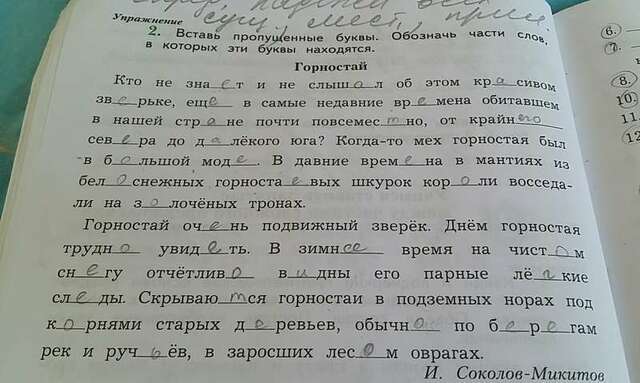 сущ., мест., прил.
Упражнение
2. Вставь пропущенные буквы. Обозначь части слов,
в которых эти буквы находятся.
Горностай
Кто не знает и не слышал об этом красивом
зверьке, еще в самые недавние времена обитавшем
в нашей стране почти повсеместно, от крайнего
севера до далёкого юга? Когда-то мех горностая был
в большой моде. В давние времена в мантиях из
белоснежных горностаевых шкурок короли восседа-
ли на золочёных тронах.
Горностай очень подвижный зверёк. Днём горностая
трудно увидеть. В зимнее время на чистом
снегу отчётливо видны его парные лёгкие
следы. Скрываются горностаи в подземных норах под
корнями старых деревьев, обычно по берегам
рек и ручьёв, в заросших лесом оврагах.
И. Соколов-Микитов
6.
7.
8.
10.
11.
12